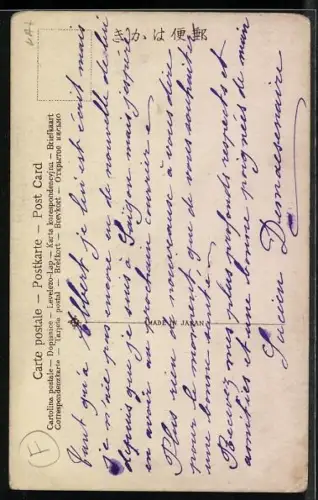 郵便はかき
Carte postale — Postkarte — Post Card
Cartolina postale — Dopisnice — Levelezo-Lap — Karta korespondencyjna — Briefkaart
Correspondenzkarte — Tarjeta postal — Brefkort — Brevkort — Открытое письмо
(MADE IN JAPAN)
F
Tant qu'à Albert je lui est écrit mais
je n'ai pas encore eu de nouvelle de lui
depuis que je suis à Saigon mais j'espère
en avoir au prochain courrier
Plus rien de nouveau à vous dire
pour le moment que de vous souhaiter
une bonne santé.
Recevez mes plus profonds respects et
amitiés et une bonne poignées de main
Lucien